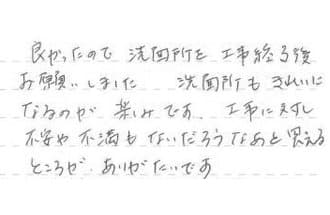 良かったので 洗面所を 工事終了後
お願いしました 洗面所も きれいに
なるのが 楽しみです。 工事に対し
不安や不満もないだろうなあと思える
ところが、ありがたいです